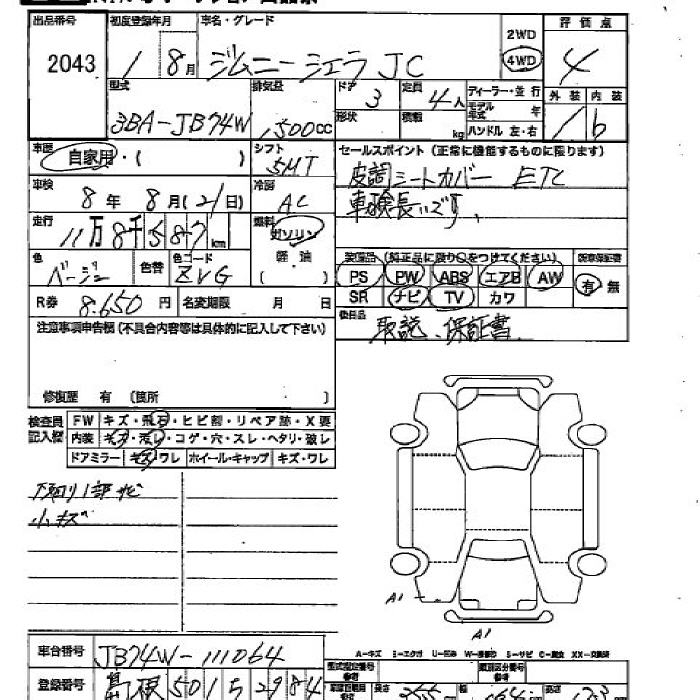 出品番号 初度登録年月 車名・グレード 評価点
2043 1 8月 ジムニーシエラ JC 2WD 4WD 4
型式 排気量 ドア 3 定員 4人 ディーラー・並行 外装 内装
3BA-JB74W 1,500cc 形状 積載 kg モデル年式 年 ハンドル 左・右 b
車歴 自家用・( ) シフト 5MT セールスポイント (正常に機能するものに限ります)
車検 8年 8月(21日) 冷房 AC 皮調シートカバー ETC
車検長いです。
走行 11万8千587km 燃料 ガソリン 軽油 ( )
装備品 (純正品に限り○をつけてください) 新車保証書
色 ベージュ 色替 色コード ZVG PS PW ABS エアB AW 有・無
R券 8,650円 名変期限 月 日 SR ナビ TV カワ
後日品 取説、保証書
注意事項申告欄 (不具合内容等は具体的に記入して下さい)
修復歴 有 (箇所 )
検査員記入欄 FW キズ・飛石・ヒビ割・リペア跡・X要
内装 キズ・汚レ・コゲ・穴・スレ・ヘタリ・破レ
ドアミラー キズ・ワレ ホイール・キャップ キズ・ワレ
下廻り1部サビ
小キズ
A1
A1
A-キズ E-エクボ U-凹み W-補修跡 S-サビ C-腐食 XX-交換済
車台番号 JB74W-111064 型式指定番号 類別区分番号
登録番号 島根 501 5 2984 長さ 355 幅 高さ